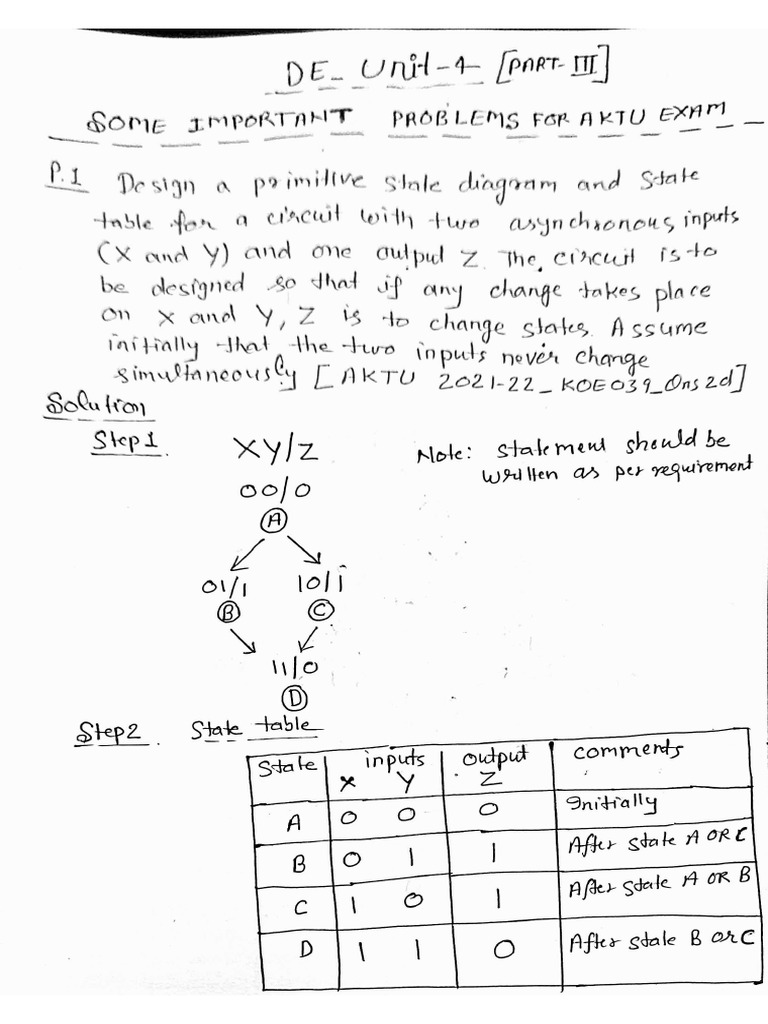 DE_ Unit-4 [PART-III]
SOME IMPORTANT PROBLEMS FOR AKTU EXAM
P.1 Design a primitive state diagram and state
table for a circuit with two asynchronous inputs
(X and Y) and one output Z. The circuit is to
be designed so that if any change takes place
on X and Y, Z is to change states. Assume
initially that the two inputs never change
simultaneously [AKTU 2021-22_KOE039_Qns2d]
Solution
Step1. XY/Z Note: Statement should be
written as per requirement
00/0
A
01/1 10/1
B C
11/0
D
Step2. State table
State inputs output comments
X Y Z
A 0 0 0 Initially
B 0 1 1 After state A OR C
C 1 0 1 After state A OR B
D 1 1 0 After state B or C